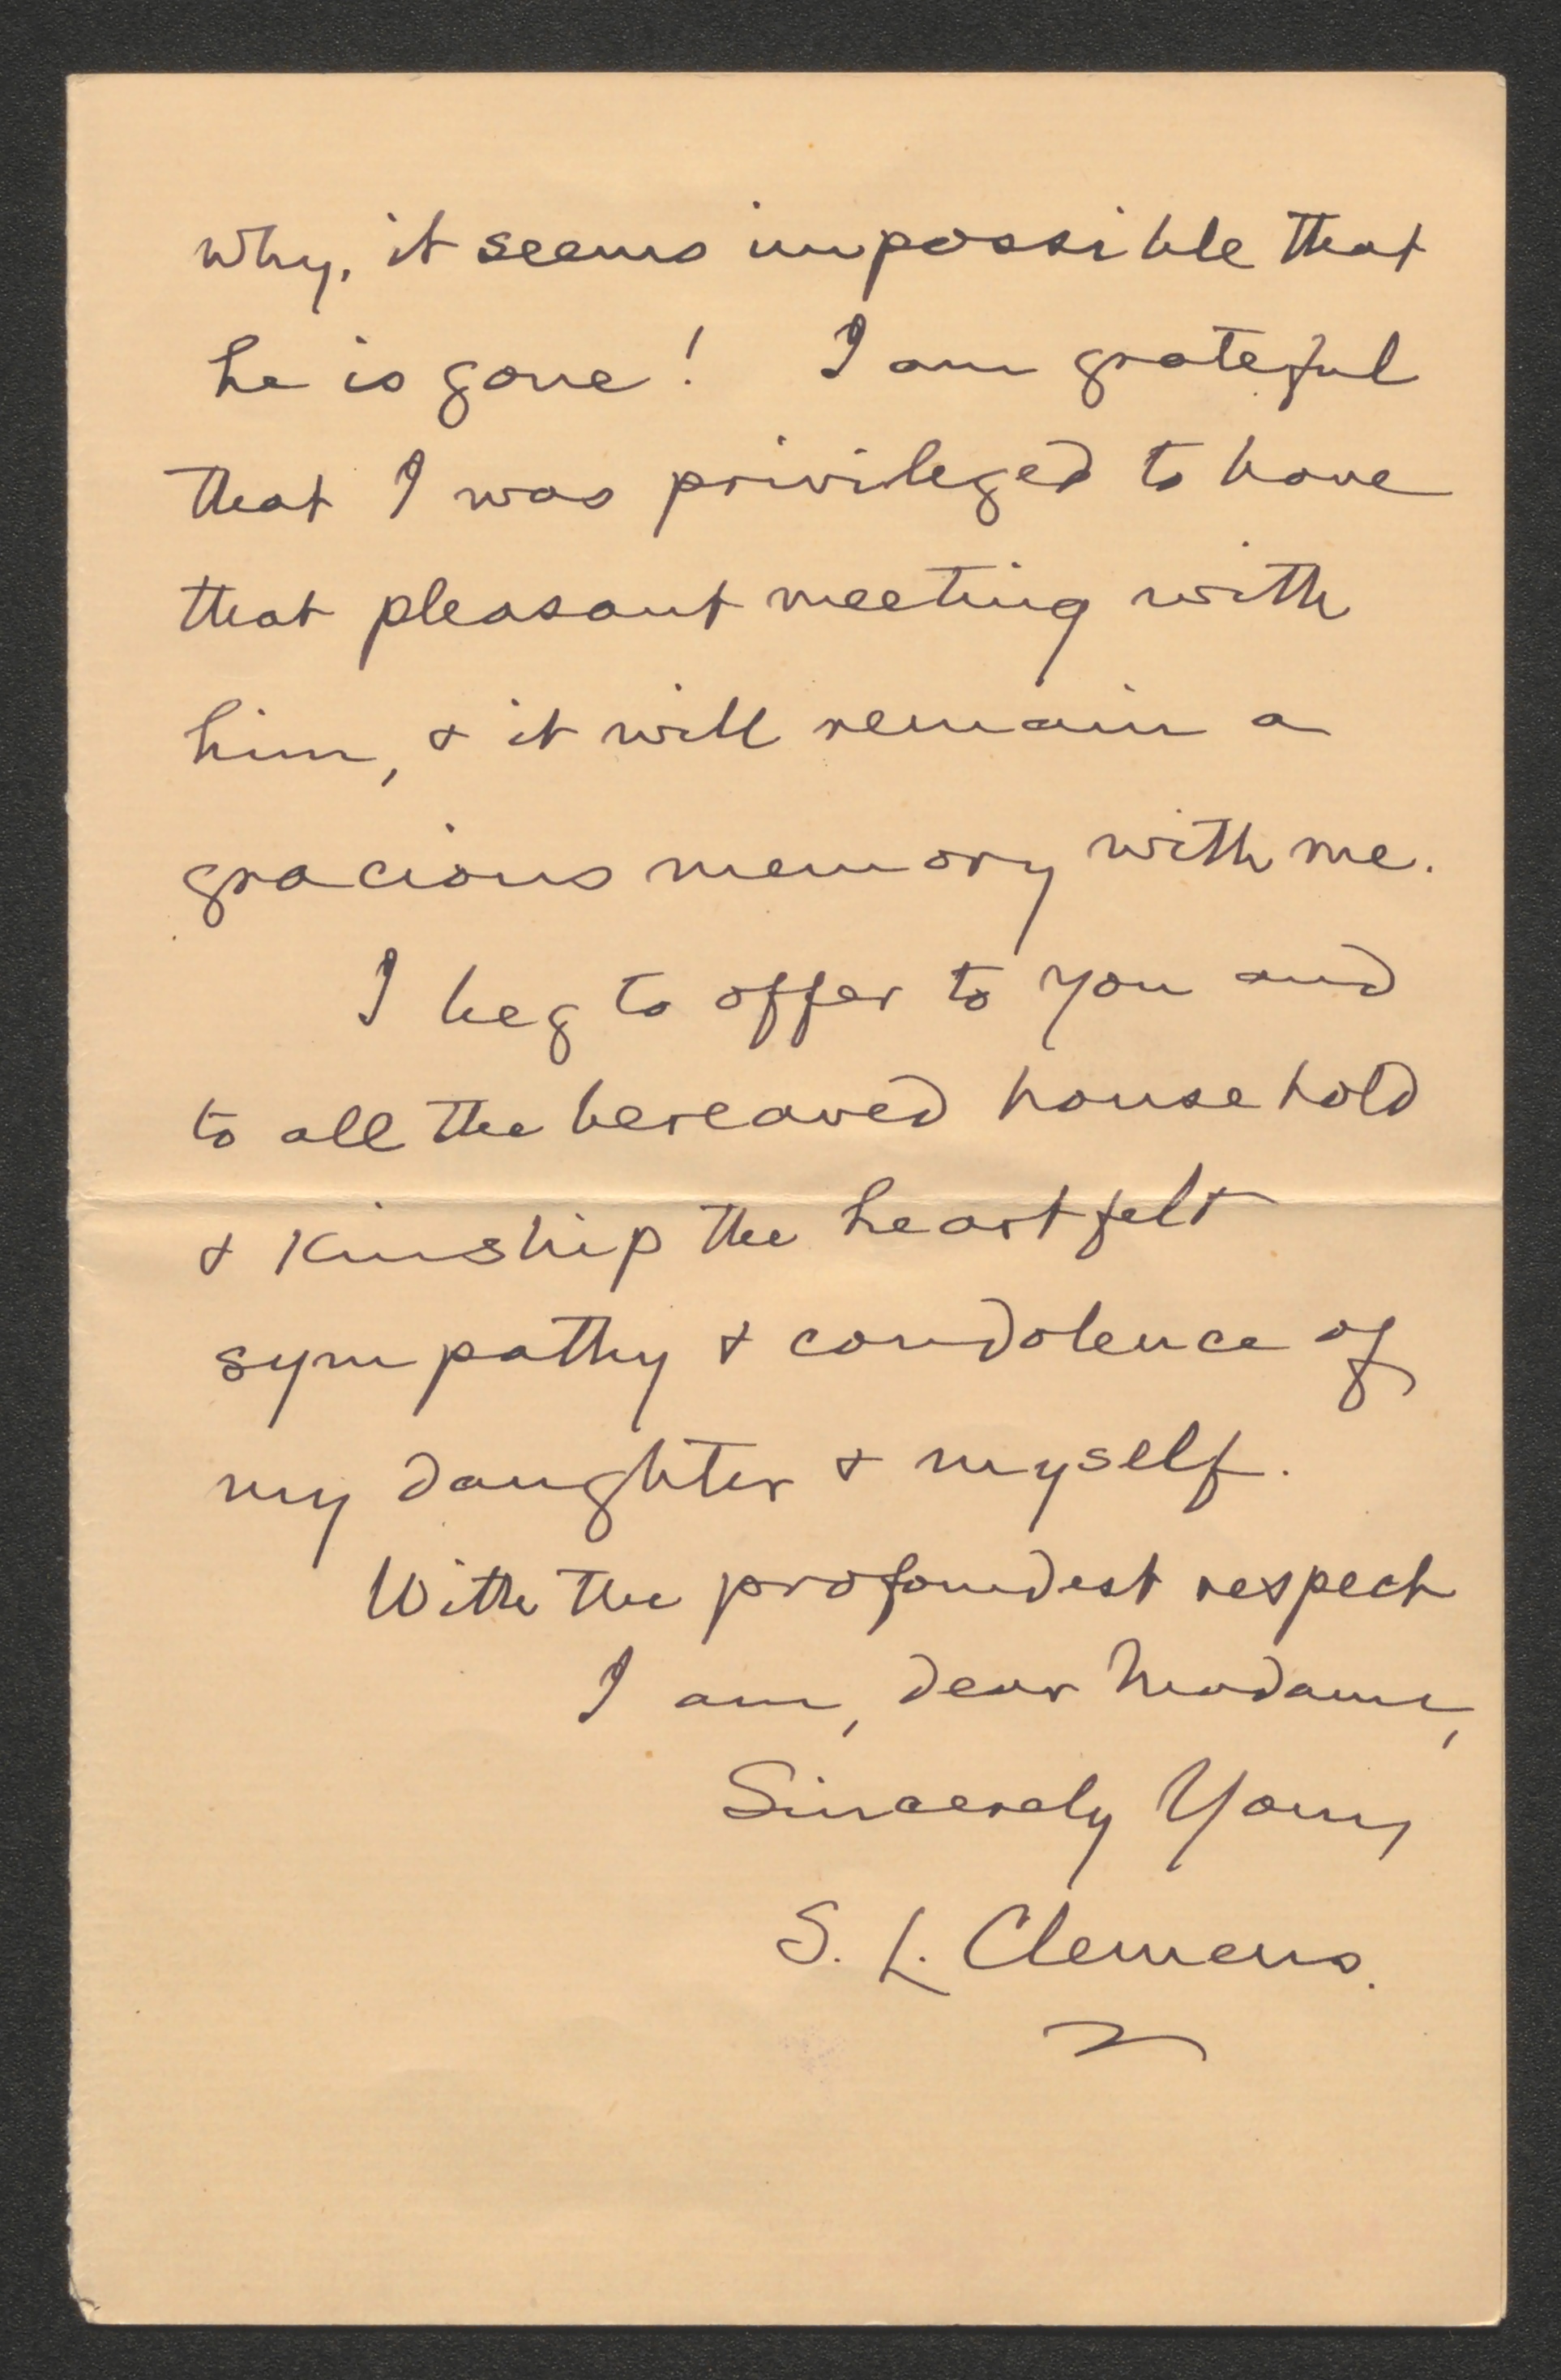 why, it seems impossible that
he is gone! I am grateful
that I was privileged to have
that pleasant meeting with
him, & it will remain a
gracious memory with me.
I beg to offer to you and
to all the bereaved household
& kinship the heartfelt
sympathy & condolence of
my daughter & myself.
With the profoundest respect
I am, dear Madame,
Sincerely Yours
S. L. Clemens.